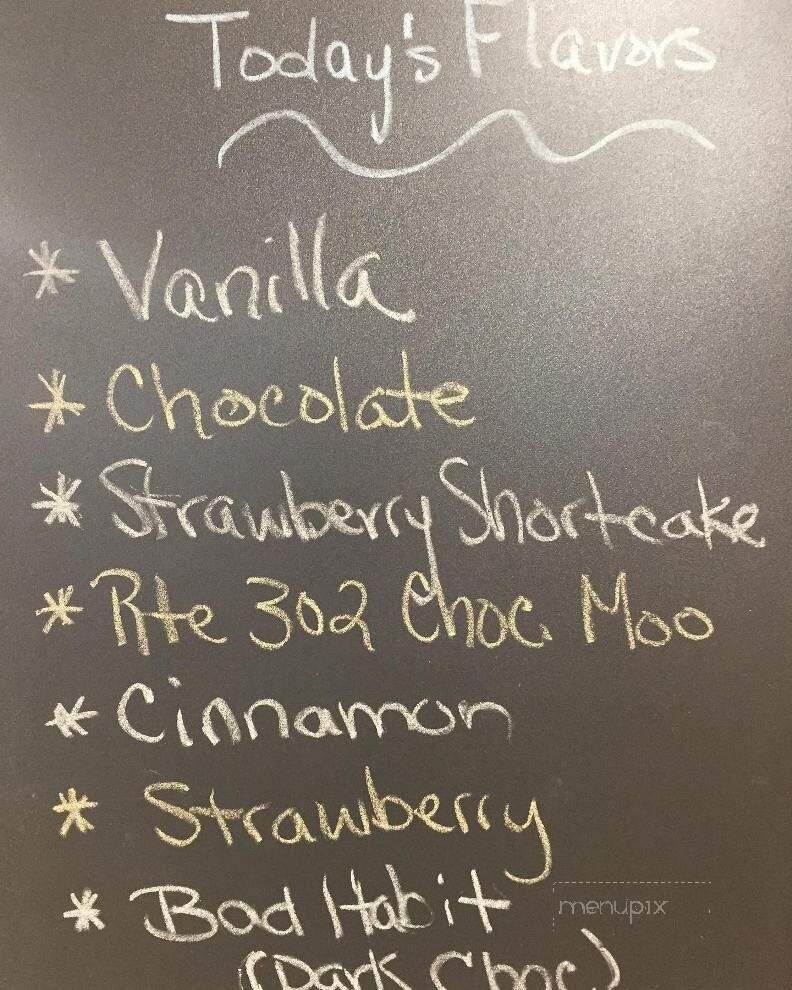 Today's Flavors
* Vanilla
* Chocolate
* Strawberry Shortcake
* Rte 302 Choc Moo
* Cinnamon
* Strawberry
* Bad Habit
menupix
(Dark Choc)